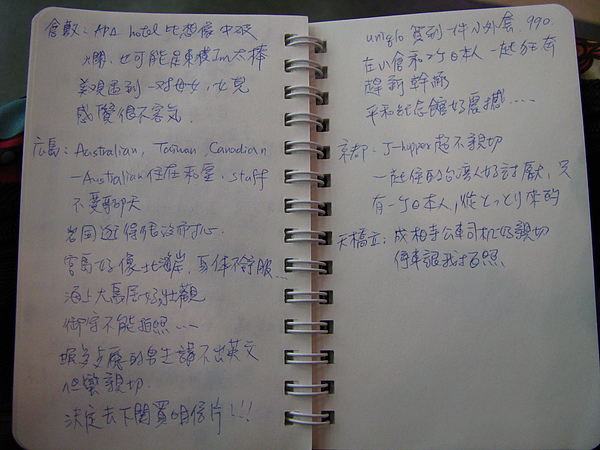 倉敷：APA hotel 比想像中破
爛、也可能是東橫Inn太棒
美觀遇到一对母女，女兒
感覺很不客氣．
広島：Australian, Taiwan, Canadian
一Australian住在和室．staff
不愛聊天
岩国逛得很沒耐心．
宮島好像北海岸，身体不舒服…
海上大鳥居好壯觀
御守不能拍照…
眼鏡店的男生講不出英文
但蠻親切．
決定去下関買明信片!!!
uniqlo 買到一件小外套．990．
在小倉和2个日本人一起狂奔
趕新幹線
平和紀念館好震撼….
京都．J-hopper超不親切
一起住的台湾人好討厭，只
有一个日本人，從とっとり來的
天橋立：成相寺公車司机好親切
停車讓我拍照．